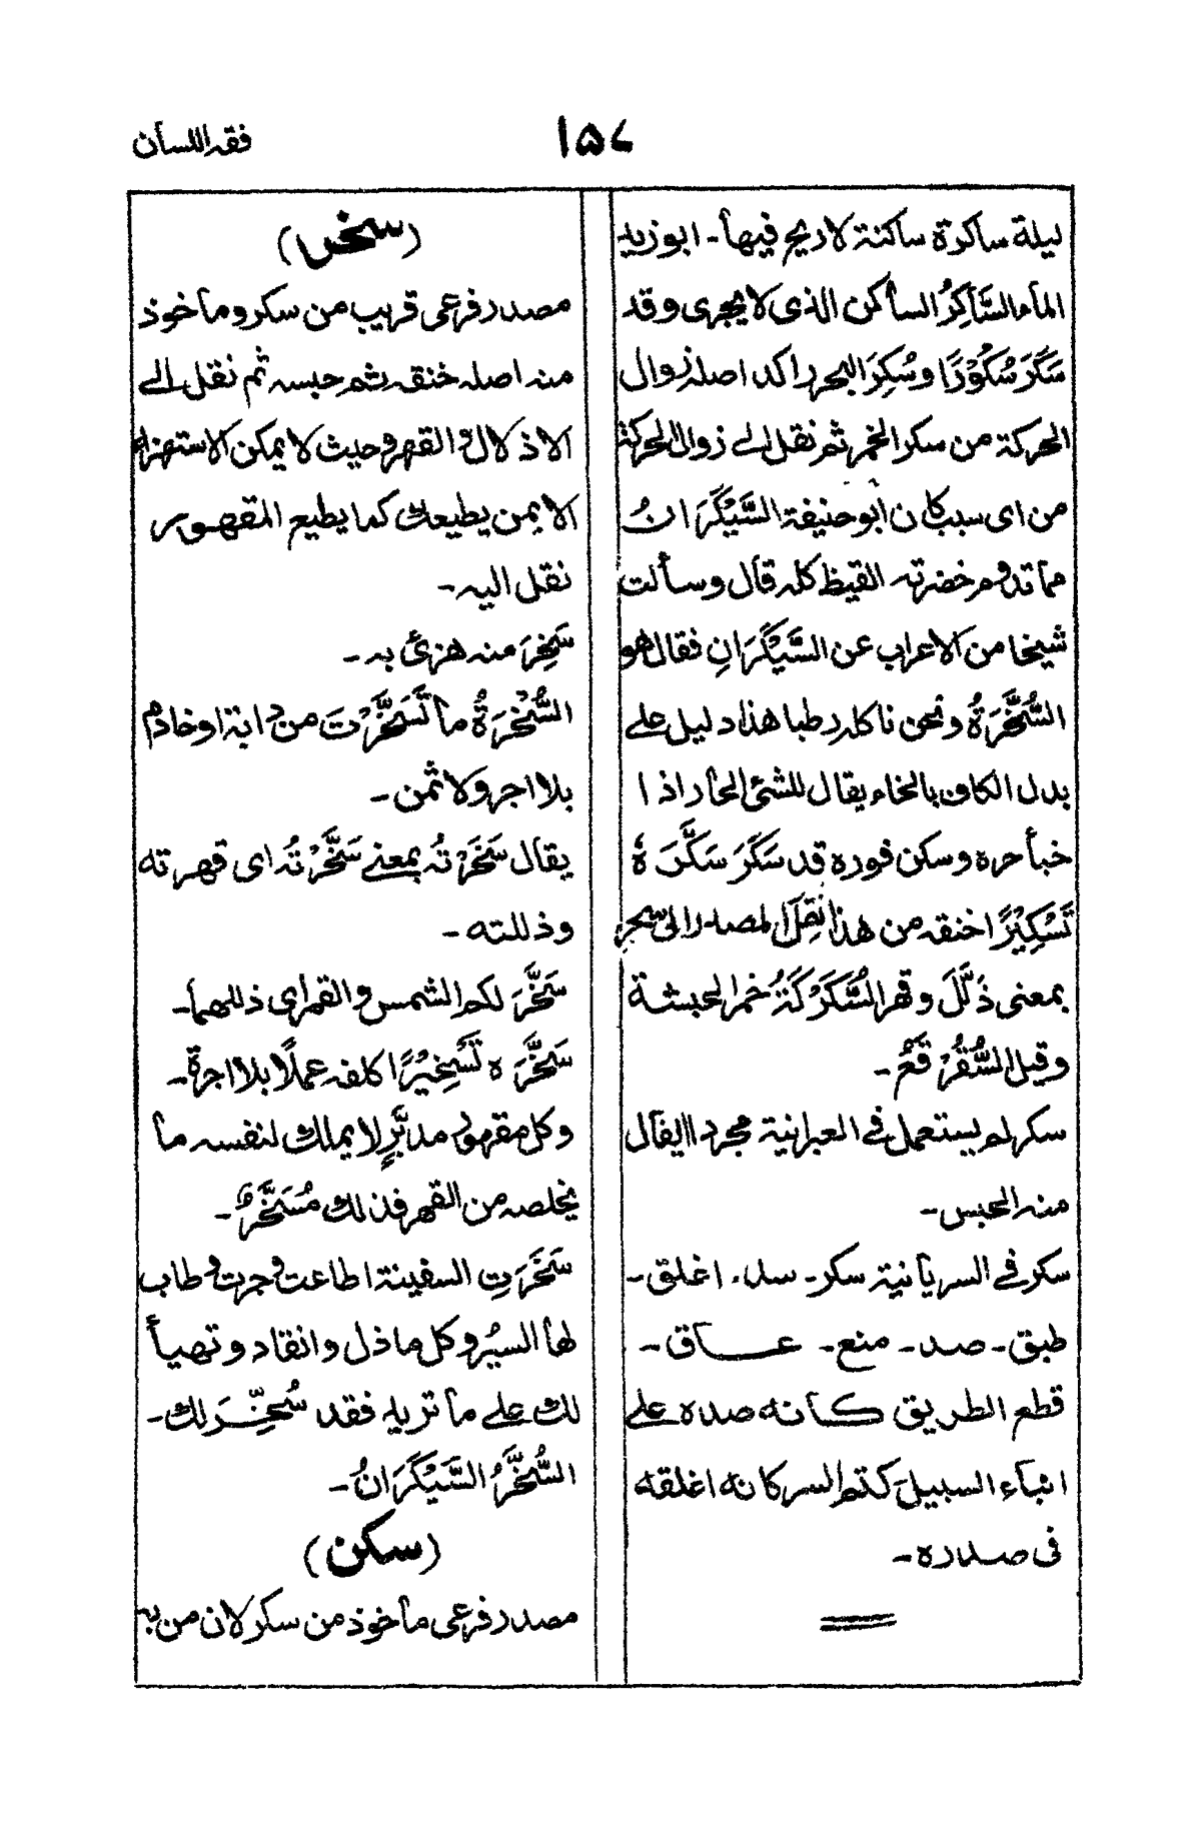 فقہ اللسان
۱۵۷
ليلة ساكرة ساكنة لا ريح فيها۔ ابو زيد
الماء السَّاكِرُ الساكن الذى لا يجرى وقد
سَكَرَ سُكُوْرًا وسُكِرَ البحر راكد اصله زوال
الحركة من سكر الخمر ثم نقل الے زوال الحركة
من اى سبب كان ابو حنيفة السَّيْكَرَانُ
مما تدوم خضرته القيظ كله قال وسألت
شيخا من الاعراب عن السَّيْكَرَانِ فقال هو
السُّخَّرَةُ ونحن ناكله رطبا هذا دليل علے
بدل الكاف بالخاء يقال للشئ الحار اذا
خبأ حره وسكن فوره قد سَكَرَ سَكَّرَهٗ
تَسْكِيْرًا خنقه من هذا نُقِلَ المصدر الى سخر
بمعنى ذَلَّلَ وقهر السُّكَرْكَةُ خمر الحبشة
وقيل السُّقُرْقَعُ۔
سكر لم يستعمل فے العبرانية مجردا ايقال
منه الحبس۔
سكر فے السريانية سكر۔ سد۔ اغلق۔
طبق۔ صد۔ منع۔ عاق۔
قطع الطريق كانه صده علے
ابناء السبيل كتم السر كانه اغلقه
فى صدره۔
(سخر)
مصدر فرعى قريب من سكر وماخوذ
منه اصله خنقه ثم حبسه ثم نقل الے
الاذلال والقهر وحيث لا يمكن الاستهزاء
الا بمن يطيعك كما يطيع المقهور
نقل اليه۔
سَخِرَ منه هزئ به۔
السُّخْرَةُ ما تَسَخَّرْتَ من دابة او خادم
بلا اجر ولا ثمن۔
يقال سَخَرْتُه بمعنے سَخَّرْتُه اى قهرته
وذللته۔
سَخَّرَ لكم الشمس والقمر اى ذللهما۔
سَخَّرَه تَسْخِيْرًا كلفه عملًا بلا اجرة۔
وكل مقهور مدبَّرٍ لا يملك لنفسه ما
يخلصه من القهر فذلك مُسَخَّرٌ۔
سَخَرَتِ السفينة اطاعت وجرت وطاب
لها السيْرُ وكل ما ذل وانقاد وتهيأ
لك علے ما تريد فقد سُخِّرَ لك۔
السُّخَّرُ السَّيْكَرَانُ۔
(سكن)
مصدر فرعى ماخوذ من سكر لان من به